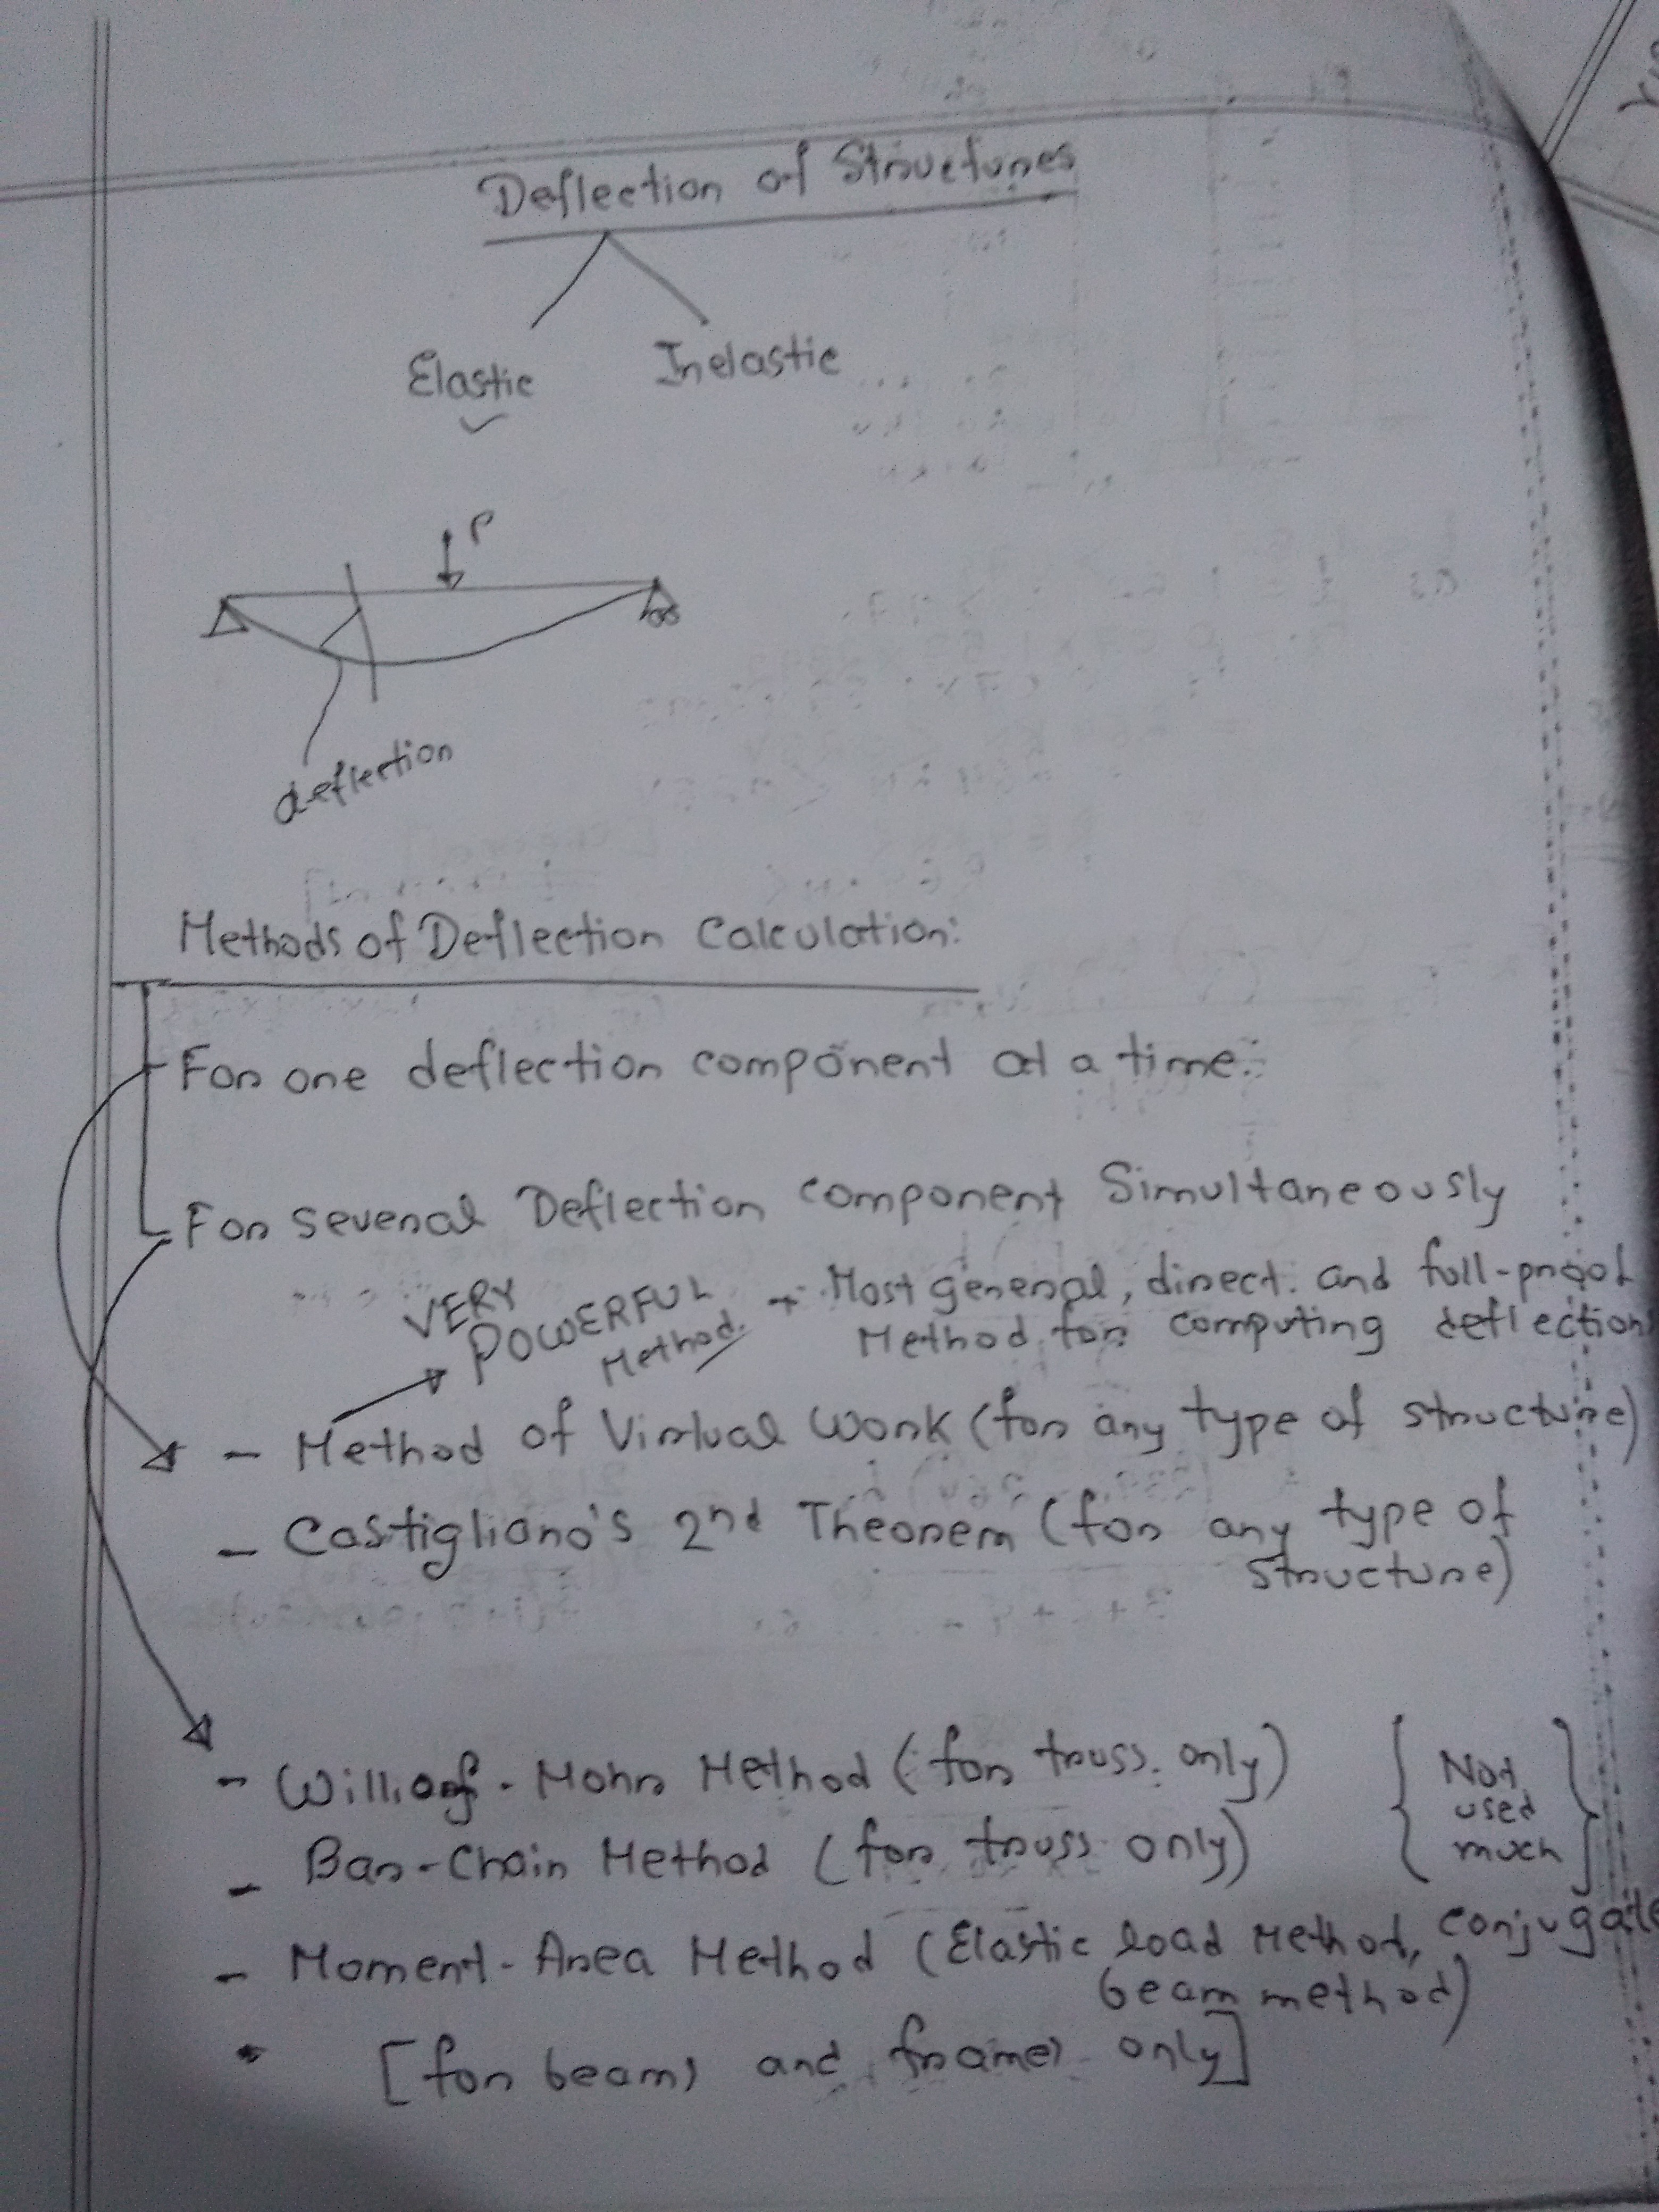 Deflection of Structures
Elastic Inelastic
P
deflection
Methods of Deflection Calculation:
For one deflection component at a time.
For several Deflection component Simultaneously
VERY
POWERFUL
Method.
→ Most general, direct and full-proof
Method for computing deflection
- Method of Virtual Work (for any type of structure)
- Castigliano's 2nd Theorem (for any type of
structure)
- Williot-Mohr Method (for truss only)
- Bar-Chain Method (for truss only)
{ Not
used
much }
- Moment-Area Method (Elastic load Method, conjugate
beam method)
[for beams and frames only]